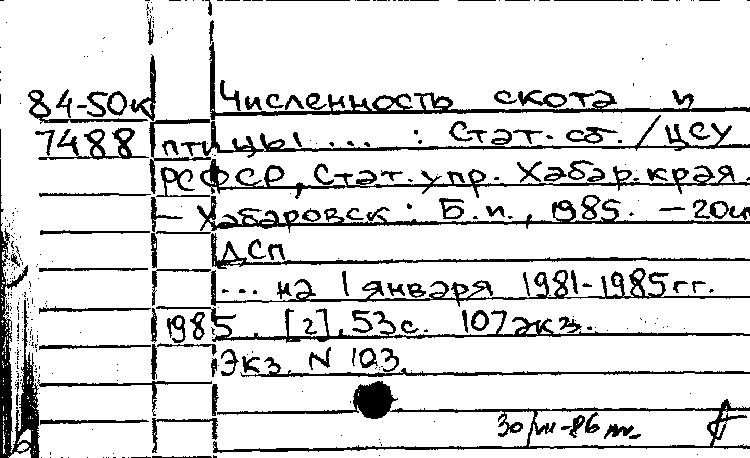 84-50к Численность скота и
7488 птицы ... : Стат. сб. / ЦСУ
РСФСР, Стат. упр. Хабар. края.
— Хабаровск : Б. и., 1985. — 20см
ДСП
... на 1 января 1981-1985гг.
1985. [2], 53 с. 107 экз.
Экз. N 103.
30/
-86